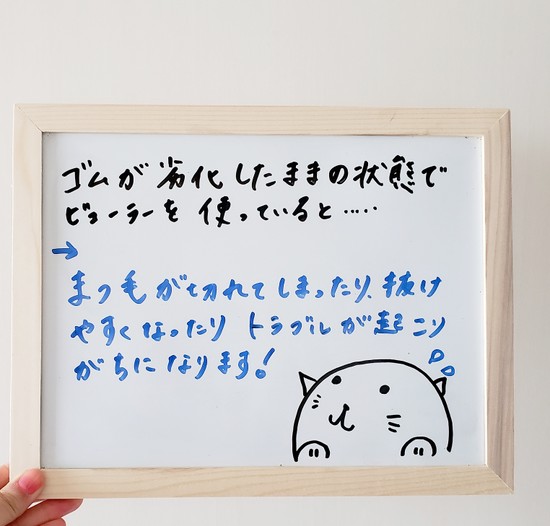 ゴムが劣化したままの状態で
ビューラーを使っていると‥‥‥
→
まつ毛が切れてしまったり、抜け
やすくなったりトラブルが起こり
がちになります!